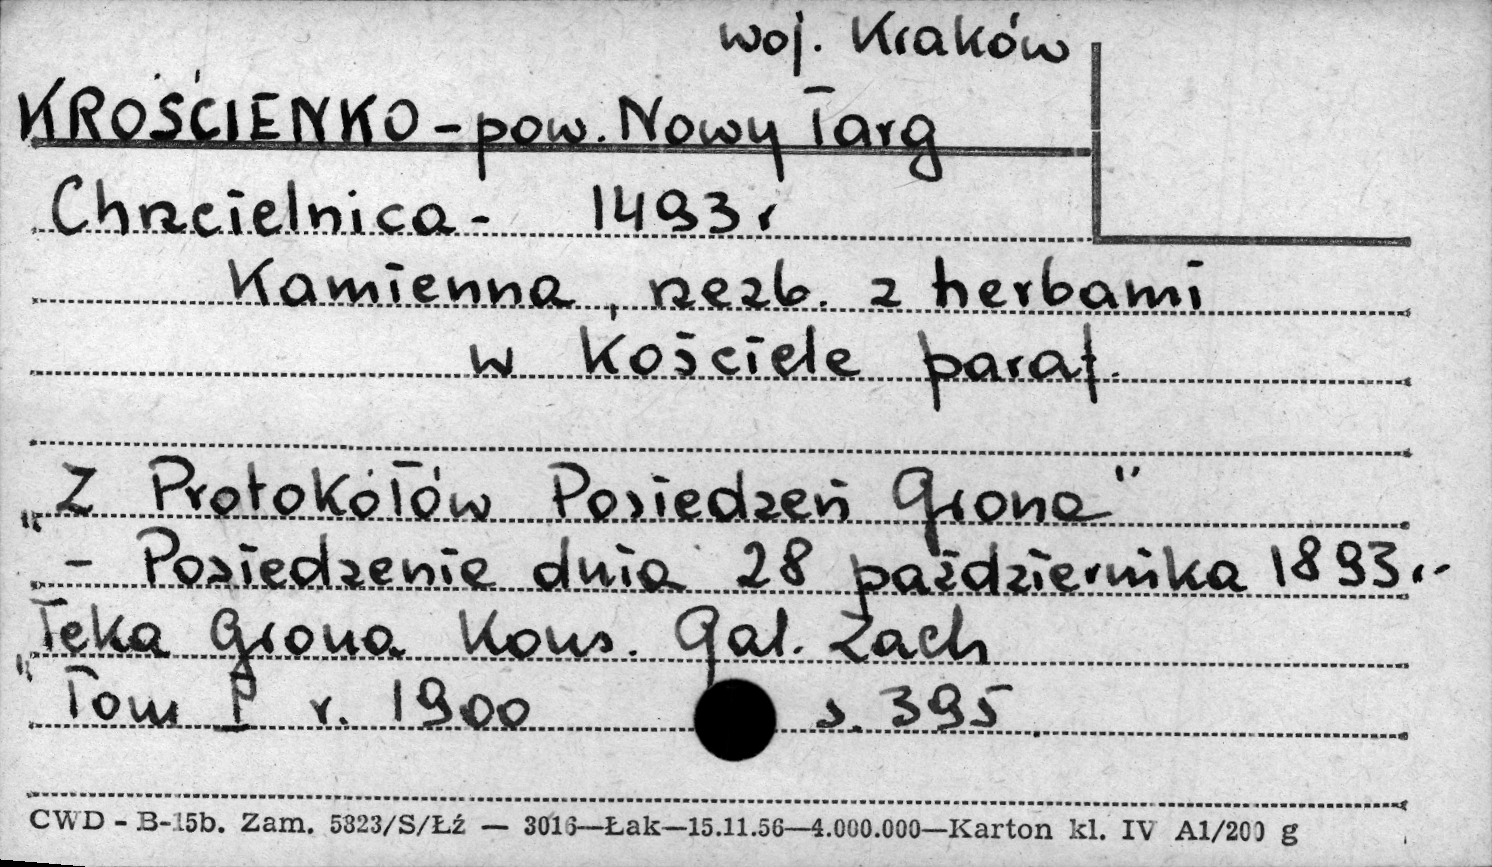 woj. Kraków
KROŚCIENKO - pow. Nowy Targ
Chrzcielnica - 1493 r
Kamienna, rzezb. z herbami
w Kościele paraf.
"Z Protokółów Posiedzeń Grona"
- Posiedzenie dnia 28 października 1893 r. -
Teka Grona Kons. Gal. Zach
" Tom I r. 1900 s. 395
CWD - B-15b. Zam. 5323/S/Łź — 3016—Łak—15.11.56—4.000.000—Karton kl. IV A1/200 g